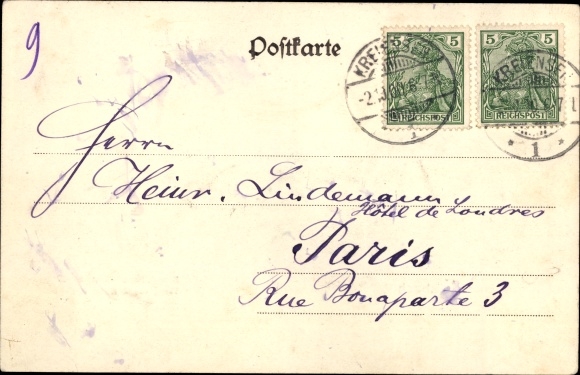 9
Postkarte
5 5
REICHSPOST REICHSPOST
KREIENSEN
1
Herrn
Heinr. Lindemann
Hôtel de Londres
Paris
Rue Bonaparte 3